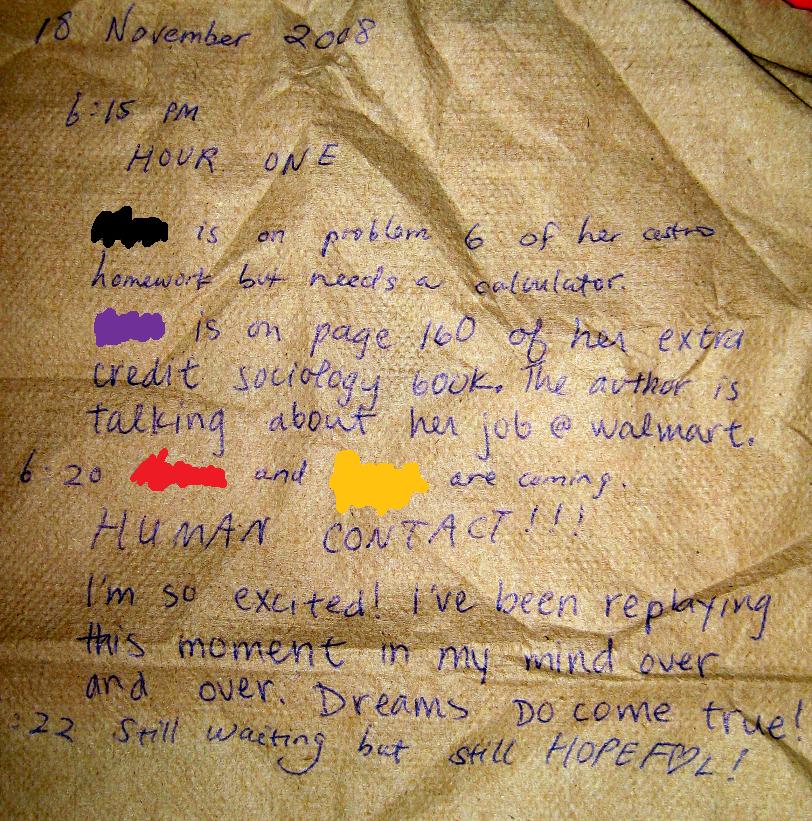 18 November 2008
6:15 PM
HOUR ONE
is on problem 6 of her astro
homework but needs a calculator.
is on page 160 of her extra
credit sociology book. The author is
talking about her job @ walmart.
6:20 and are coming.
HUMAN CONTACT!!!
I'm so excited! I've been replaying
this moment in my mind over
and over. Dreams DO come true!
:22 Still waiting but still HOPEFUL!